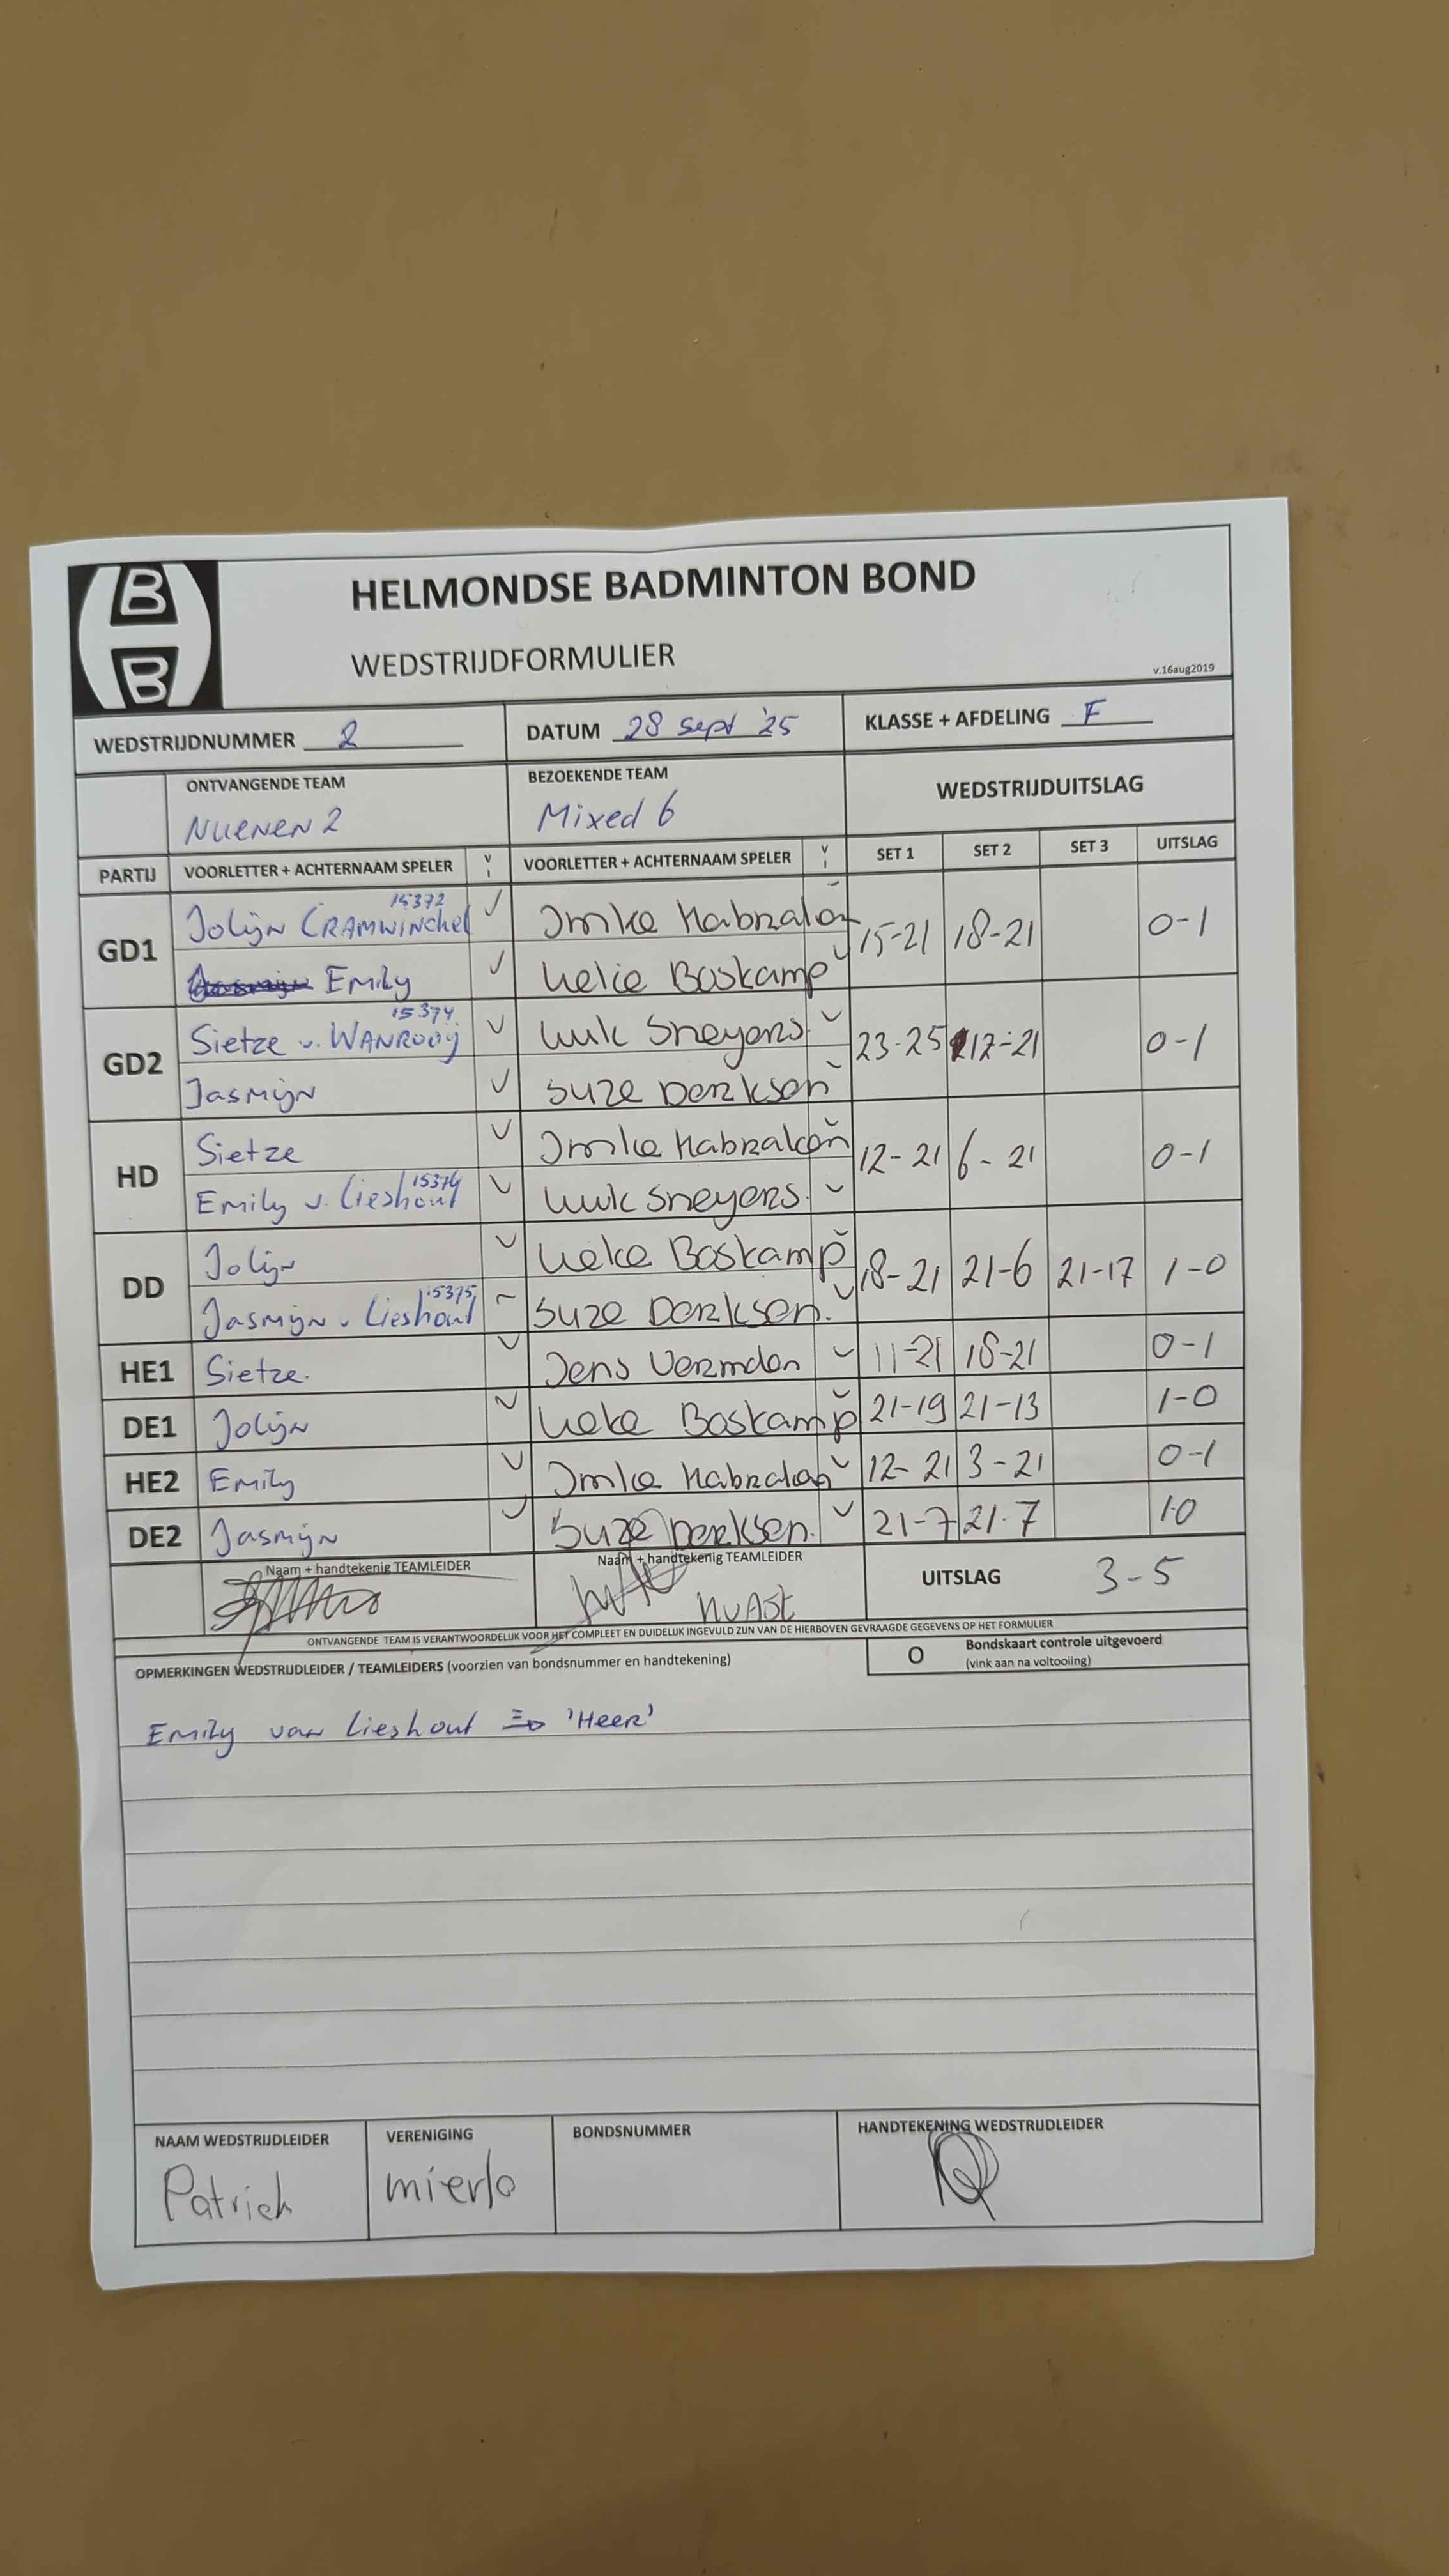 B
B
HELMONDSE BADMINTON BOND
WEDSTRIJDFORMULIER
v.16aug2019
WEDSTRIJDNUMMER 2 DATUM 28 sept '25 KLASSE + AFDELING F
ONTVANGENDE TEAM BEZOEKENDE TEAM WEDSTRIJDUITSLAG
NUENEN 2 Mixed 6
PARTIJ VOORLETTER + ACHTERNAAM SPELER V I VOORLETTER + ACHTERNAAM SPELER V I SET 1 SET 2 SET 3 UITSLAG
15372
GD1 Jolijn CRAMWINCKEL Imke Habraken 15-21 18-21 0-1
Emily Lieke Boskamp
15374
GD2 Sietze v. WANROOIJ Luuk Sneyers 23-25 17-21 0-1
Jasmijn Suze Derksen
HD Sietze Imke Habraken 12-21 6-21 0-1
Emily v. Lieshout 15376 Luuk Sneyers
DD Jolijn Lieke Boskamp 18-21 21-6 21-17 1-0
Jasmijn v Lieshout 15375 Suze Derksen.
HE1 Sietze. Jens Vermden 11-21 18-21 0-1
DE1 Jolijn Lieke Boskamp 21-19 21-13 1-0
HE2 Emily Imke Habraken 12-21 3-21 0-1
DE2 Jasmijn Suze Derksen. 21-7 21-7 1-0
Naam + handtekenig TEAMLEIDER Naam + handtekenig TEAMLEIDER UITSLAG 3-5
ONTVANGENDE TEAM IS VERANTWOORDELIJK VOOR HET COMPLEET EN DUIDELIJK INGEVULD ZIJN VAN DE HIERBOVEN GEVRAAGDE GEGEVENS OP HET FORMULIER
OPMERKINGEN WEDSTRIJDLEIDER / TEAMLEIDERS (voorzien van bondsnummer en handtekening) O Bondskaart controle uitgevoerd
(vink aan na voltooiing)
Emily van Lieshout => 'Heer'
NAAM WEDSTRIJDLEIDER VERENIGING BONDSNUMMER HANDTEKENING WEDSTRIJDLEIDER
Patrick mierlo